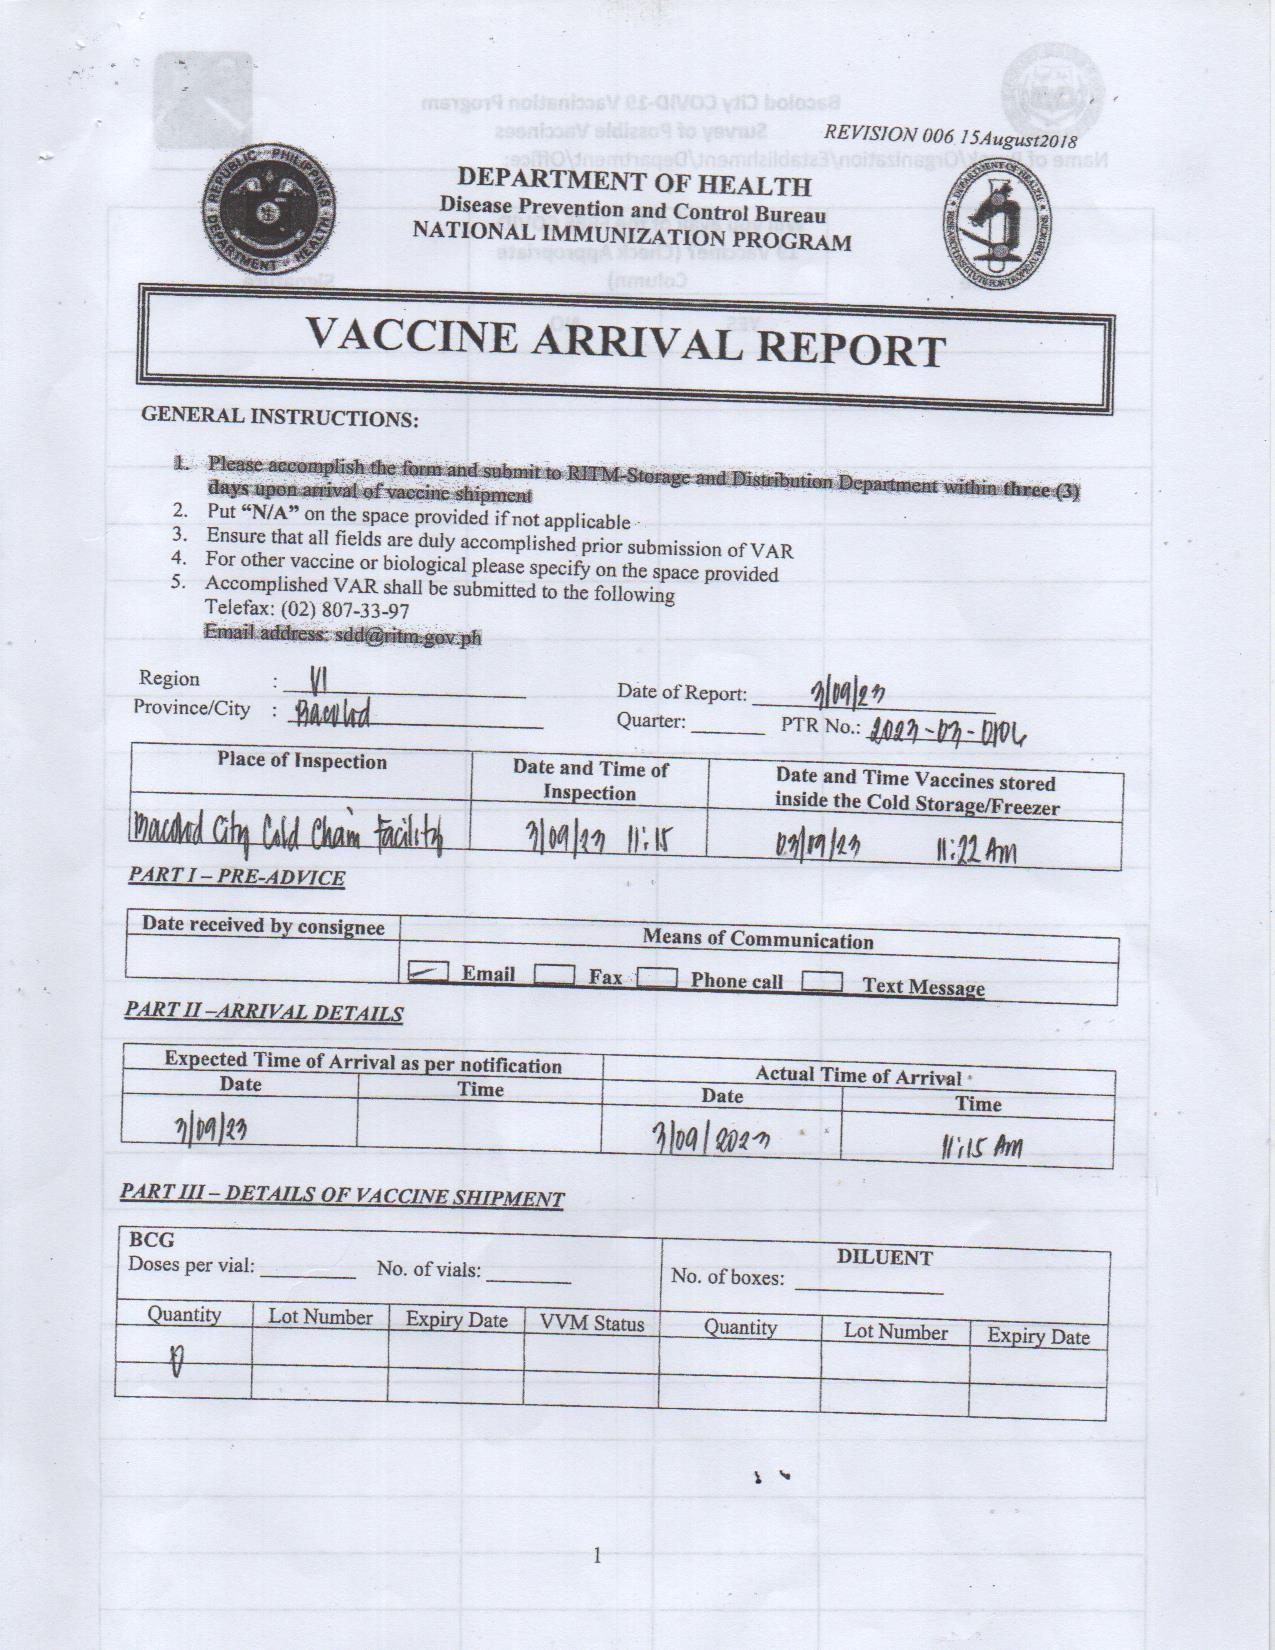 REVISION 006 15August2018
DEPARTMENT OF HEALTH
Disease Prevention and Control Bureau
NATIONAL IMMUNIZATION PROGRAM
REPUBLIC PHILIPPINES
DEPARTMENT HEALTH
VACCINE ARRIVAL REPORT
GENERAL INSTRUCTIONS:
1. Please accomplish the form and submit to RITM-Storage and Distribution Department within three (3)
days upon arrival of vaccine shipment
2. Put “N/A” on the space provided if not applicable
3. Ensure that all fields are duly accomplished prior submission of VAR
4. For other vaccine or biological please specify on the space provided
5. Accomplished VAR shall be submitted to the following
Telefax: (02) 807-33-97
Email address: sdd@ritm.gov.ph
Region : VI Date of Report: 3/09/23
Province/City : Bacolod Quarter: PTR No.: 2023-03-0106
Place of Inspection Date and Time of Inspection Date and Time Vaccines stored inside the Cold Storage/Freezer
Bacolod City Cold Chain Facility 3/09/23 11:15 03/09/23 11:22 AM
PART I – PRE-ADVICE
Date received by consignee Means of Communication
Email Fax Phone call Text Message
PART II –ARRIVAL DETAILS
Expected Time of Arrival as per notification Actual Time of Arrival
Date Time Date Time
3/09/23 3/09/2023 11:15 AM
PART III – DETAILS OF VACCINE SHIPMENT
BCG DILUENT
Doses per vial: No. of vials: No. of boxes:
Quantity Lot Number Expiry Date VVM Status Quantity Lot Number Expiry Date
0
1